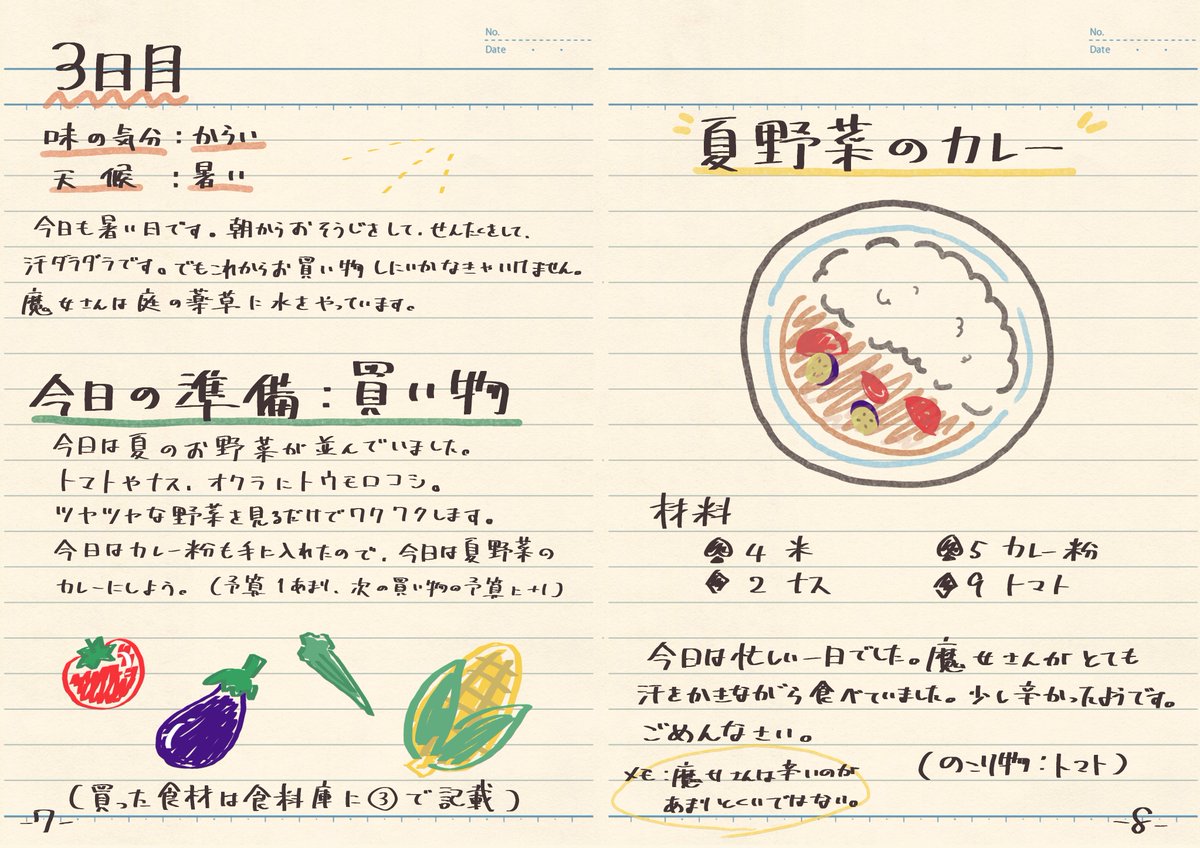 No.
Date
3日目
味の気分：からい
天候：暑い
今日も暑い日です。朝からおそうじをして、せんたくをして、
汗ダラダラです。でもこれからお買い物しにいかなきゃいけません。
魔女さんは庭の薬草に水をやっています。
今日の準備：買い物
今日は夏のお野菜が並んでいました。
トマトやナス、オクラにトウモロコシ。
ツヤツヤな野菜を見るだけでワクワクします。
今日はカレー粉も手に入れたので、今日は夏野菜の
カレーにしよう。（予算1あまり、次の買い物の予算に+1）
（買った食材は食料庫に③で記載）
-7-
No.
Date
夏野菜のカレー
材料
♠4 米 ♠5 カレー粉
♦2 ナス ♦9 トマト
今日は忙しい一日でした。魔女さんがとても
汗をかきながら食べていました。少し辛かったようです。
ごめんなさい。
（のこり物：トマト）
メモ：魔女さんは辛いのが
あまりとくいではない。
-8-